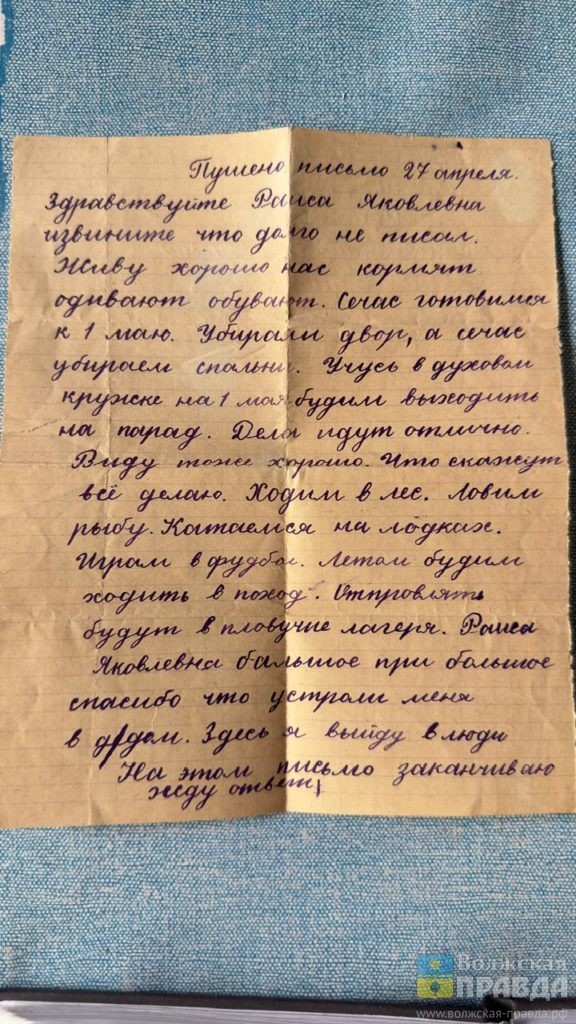 Пушено письмо 27 апреля.
Здравствуйте Раиса Яковлевна
извините что долго не писал.
Живу хорошо нас кормят
одивают обувают. Сечас готовимся
к 1 маю. Убирали двор, а сечас
убираем спальни. Учусь в духовом
кружке на 1 мая будим выходить
на парад. Дела идут отлично.
Виду тоже хорошо. Что скажут
всё делаю. Ходим в лес. Ловим
рыбу. Катаемся на лодках.
Играм в фудбол. Летом будим
ходить в поход. Отпровлять
будут в пловучие лагеря. Раиса
Яковлевна балшое при болшое
спасибо что устроли меня
в д/дом. Здесь я выйду в люди
На этом письмо заканчиваю
жду ответ
Волжская
ПРАВДА
www.волжская-правда.рф